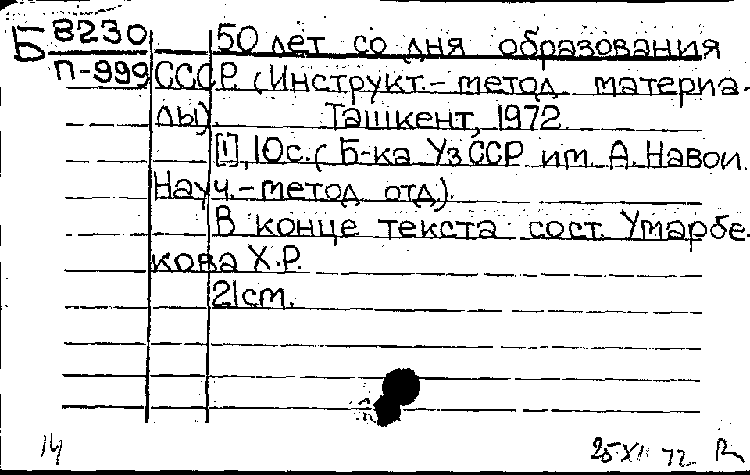 Б 8230 50 лет со дня образования
П-999 СССР. (Инструкт.-метод. материа-
лы). Ташкент, 1972.
[1], 10с. (Б-ка УзССР им. А. Навои.
Науч.-метод. отд.).
В конце текста сост. Умарбе-
кова Х.Р.
21см.
14 25 XII 72